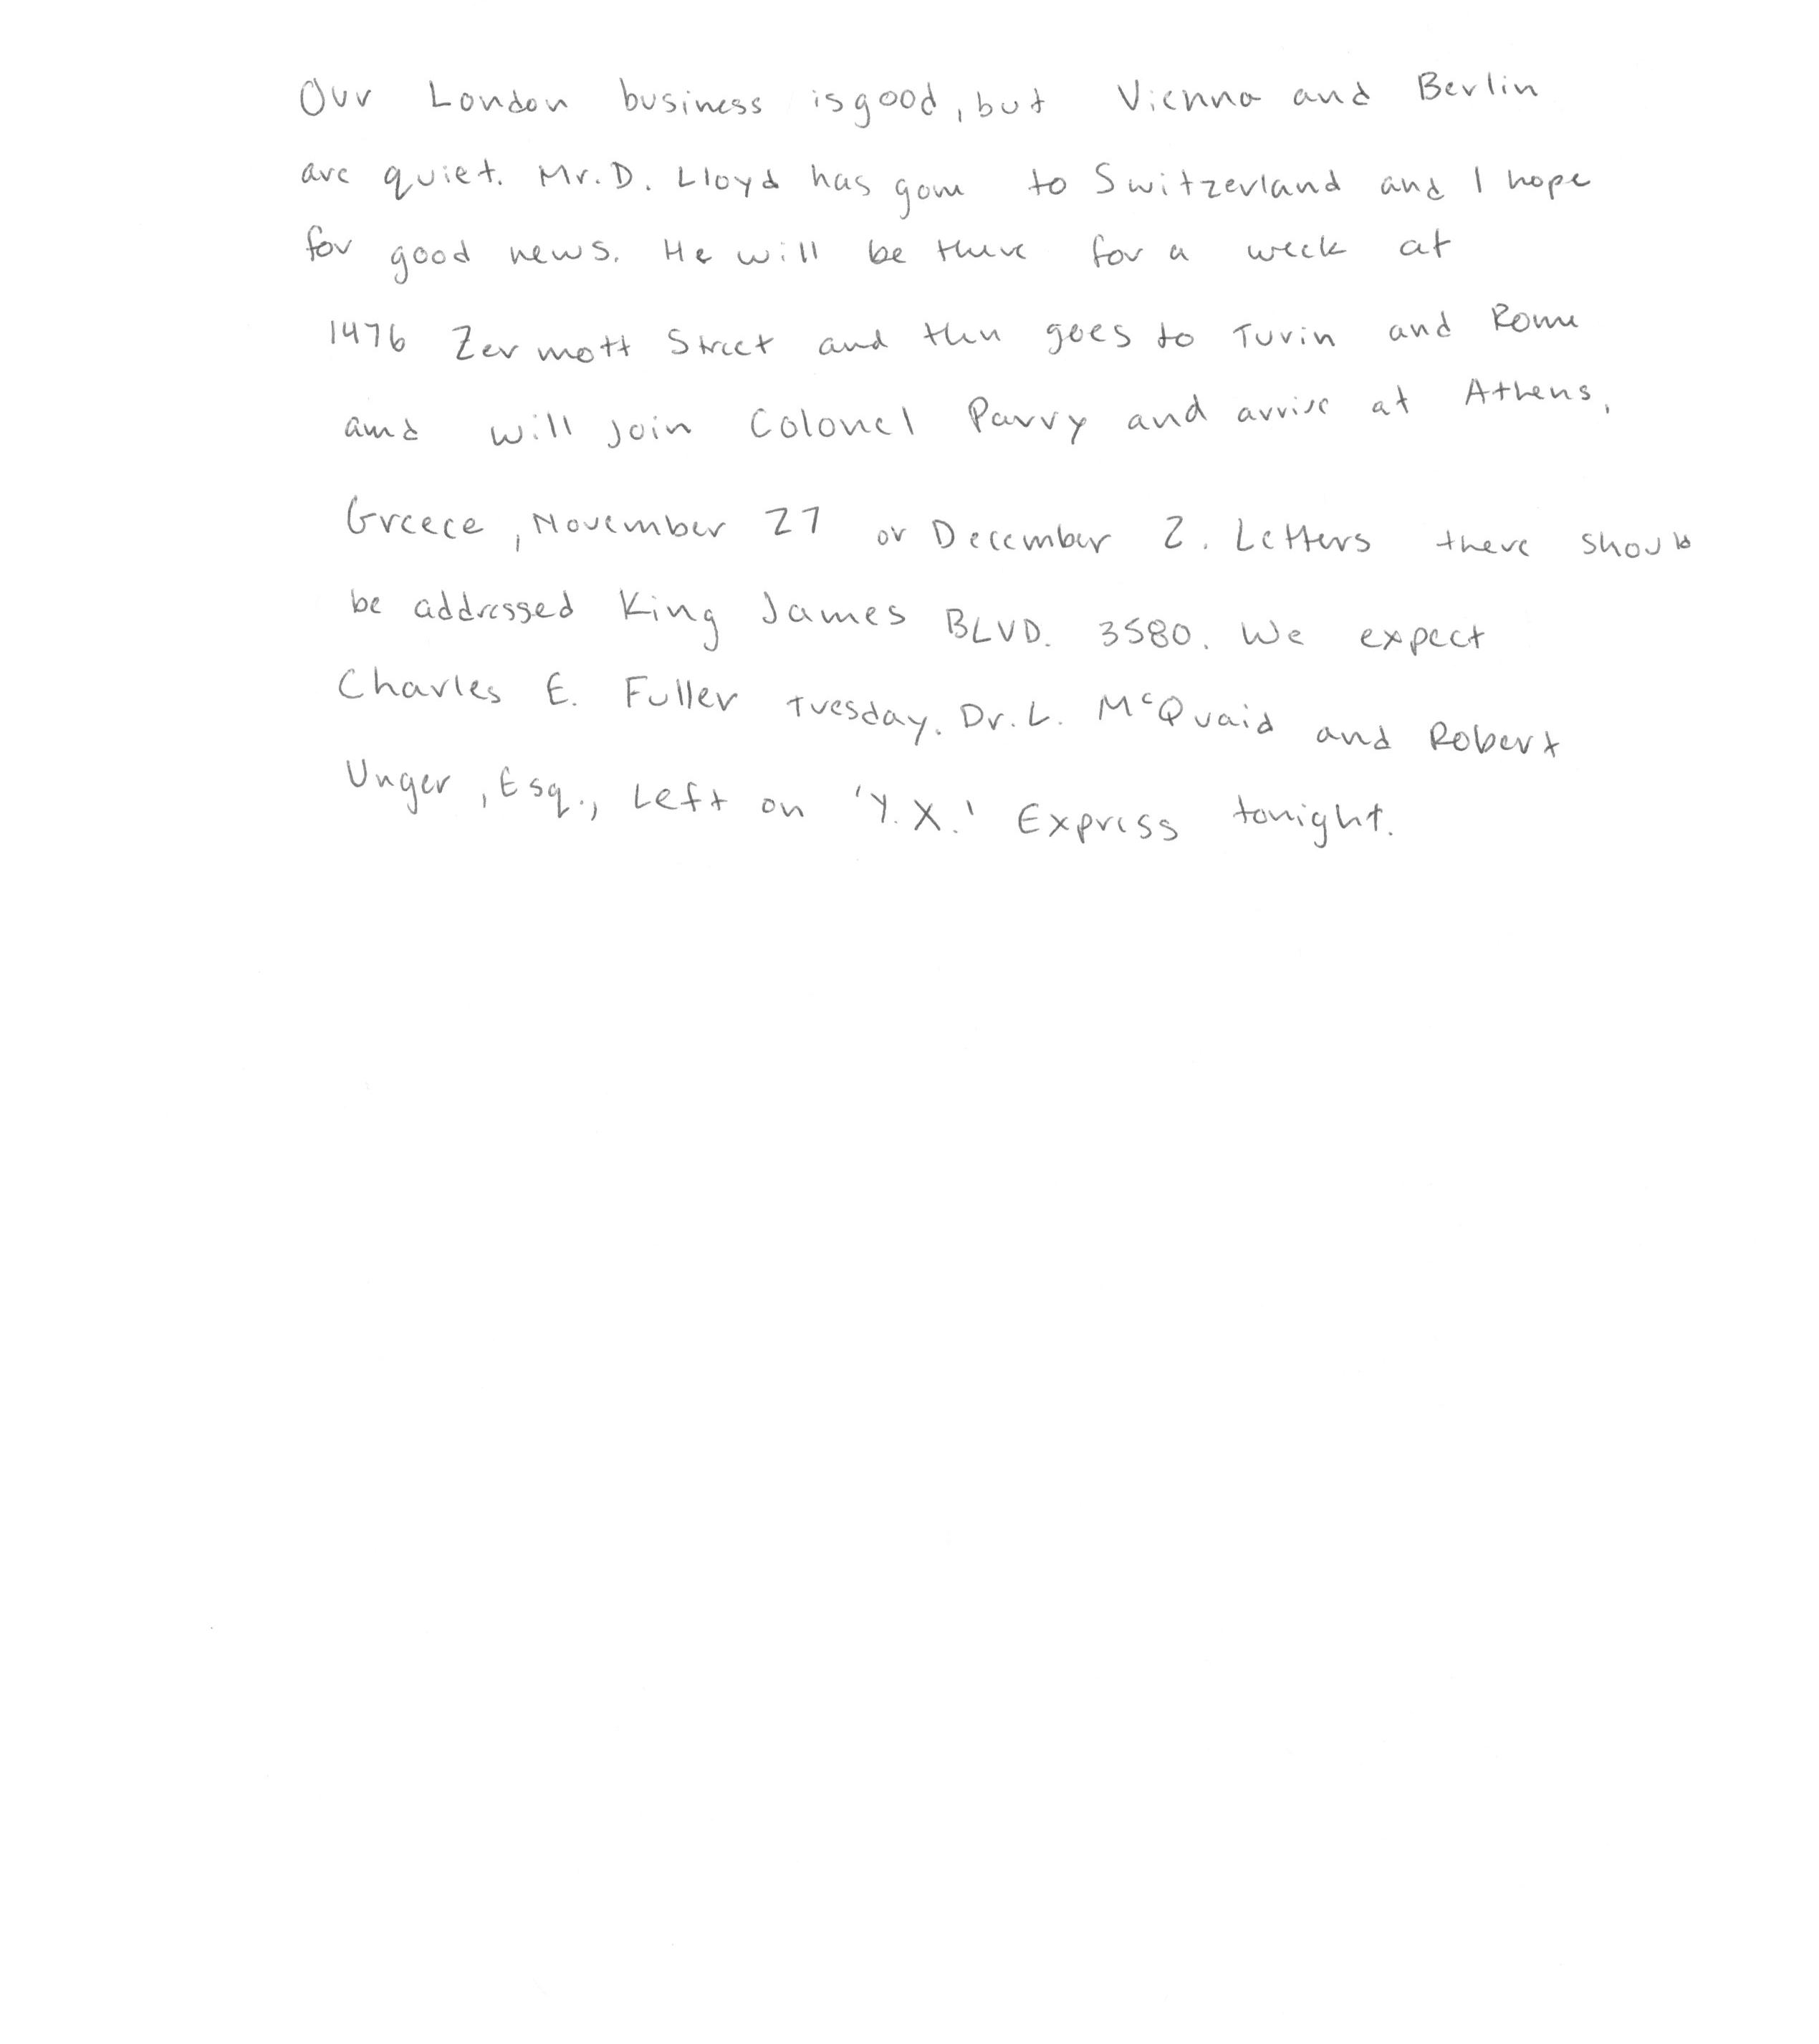 Our London business is good, but Vienna and Berlin
are quiet. Mr. D. Lloyd has gone to Switzerland and I hope
for good news. He will be there for a week at
1476 Zermott Street and then goes to Turin and Rome
and will join Colonel Parry and arrive at Athens,
Greece, November 27 or December 2. Letters there should
be addressed King James BLVD. 3580. We expect
Charles E. Fuller Tuesday. Dr. L. McQuaid and Robert
Unger, Esq., Left on 'Y.X.' Express tonight.